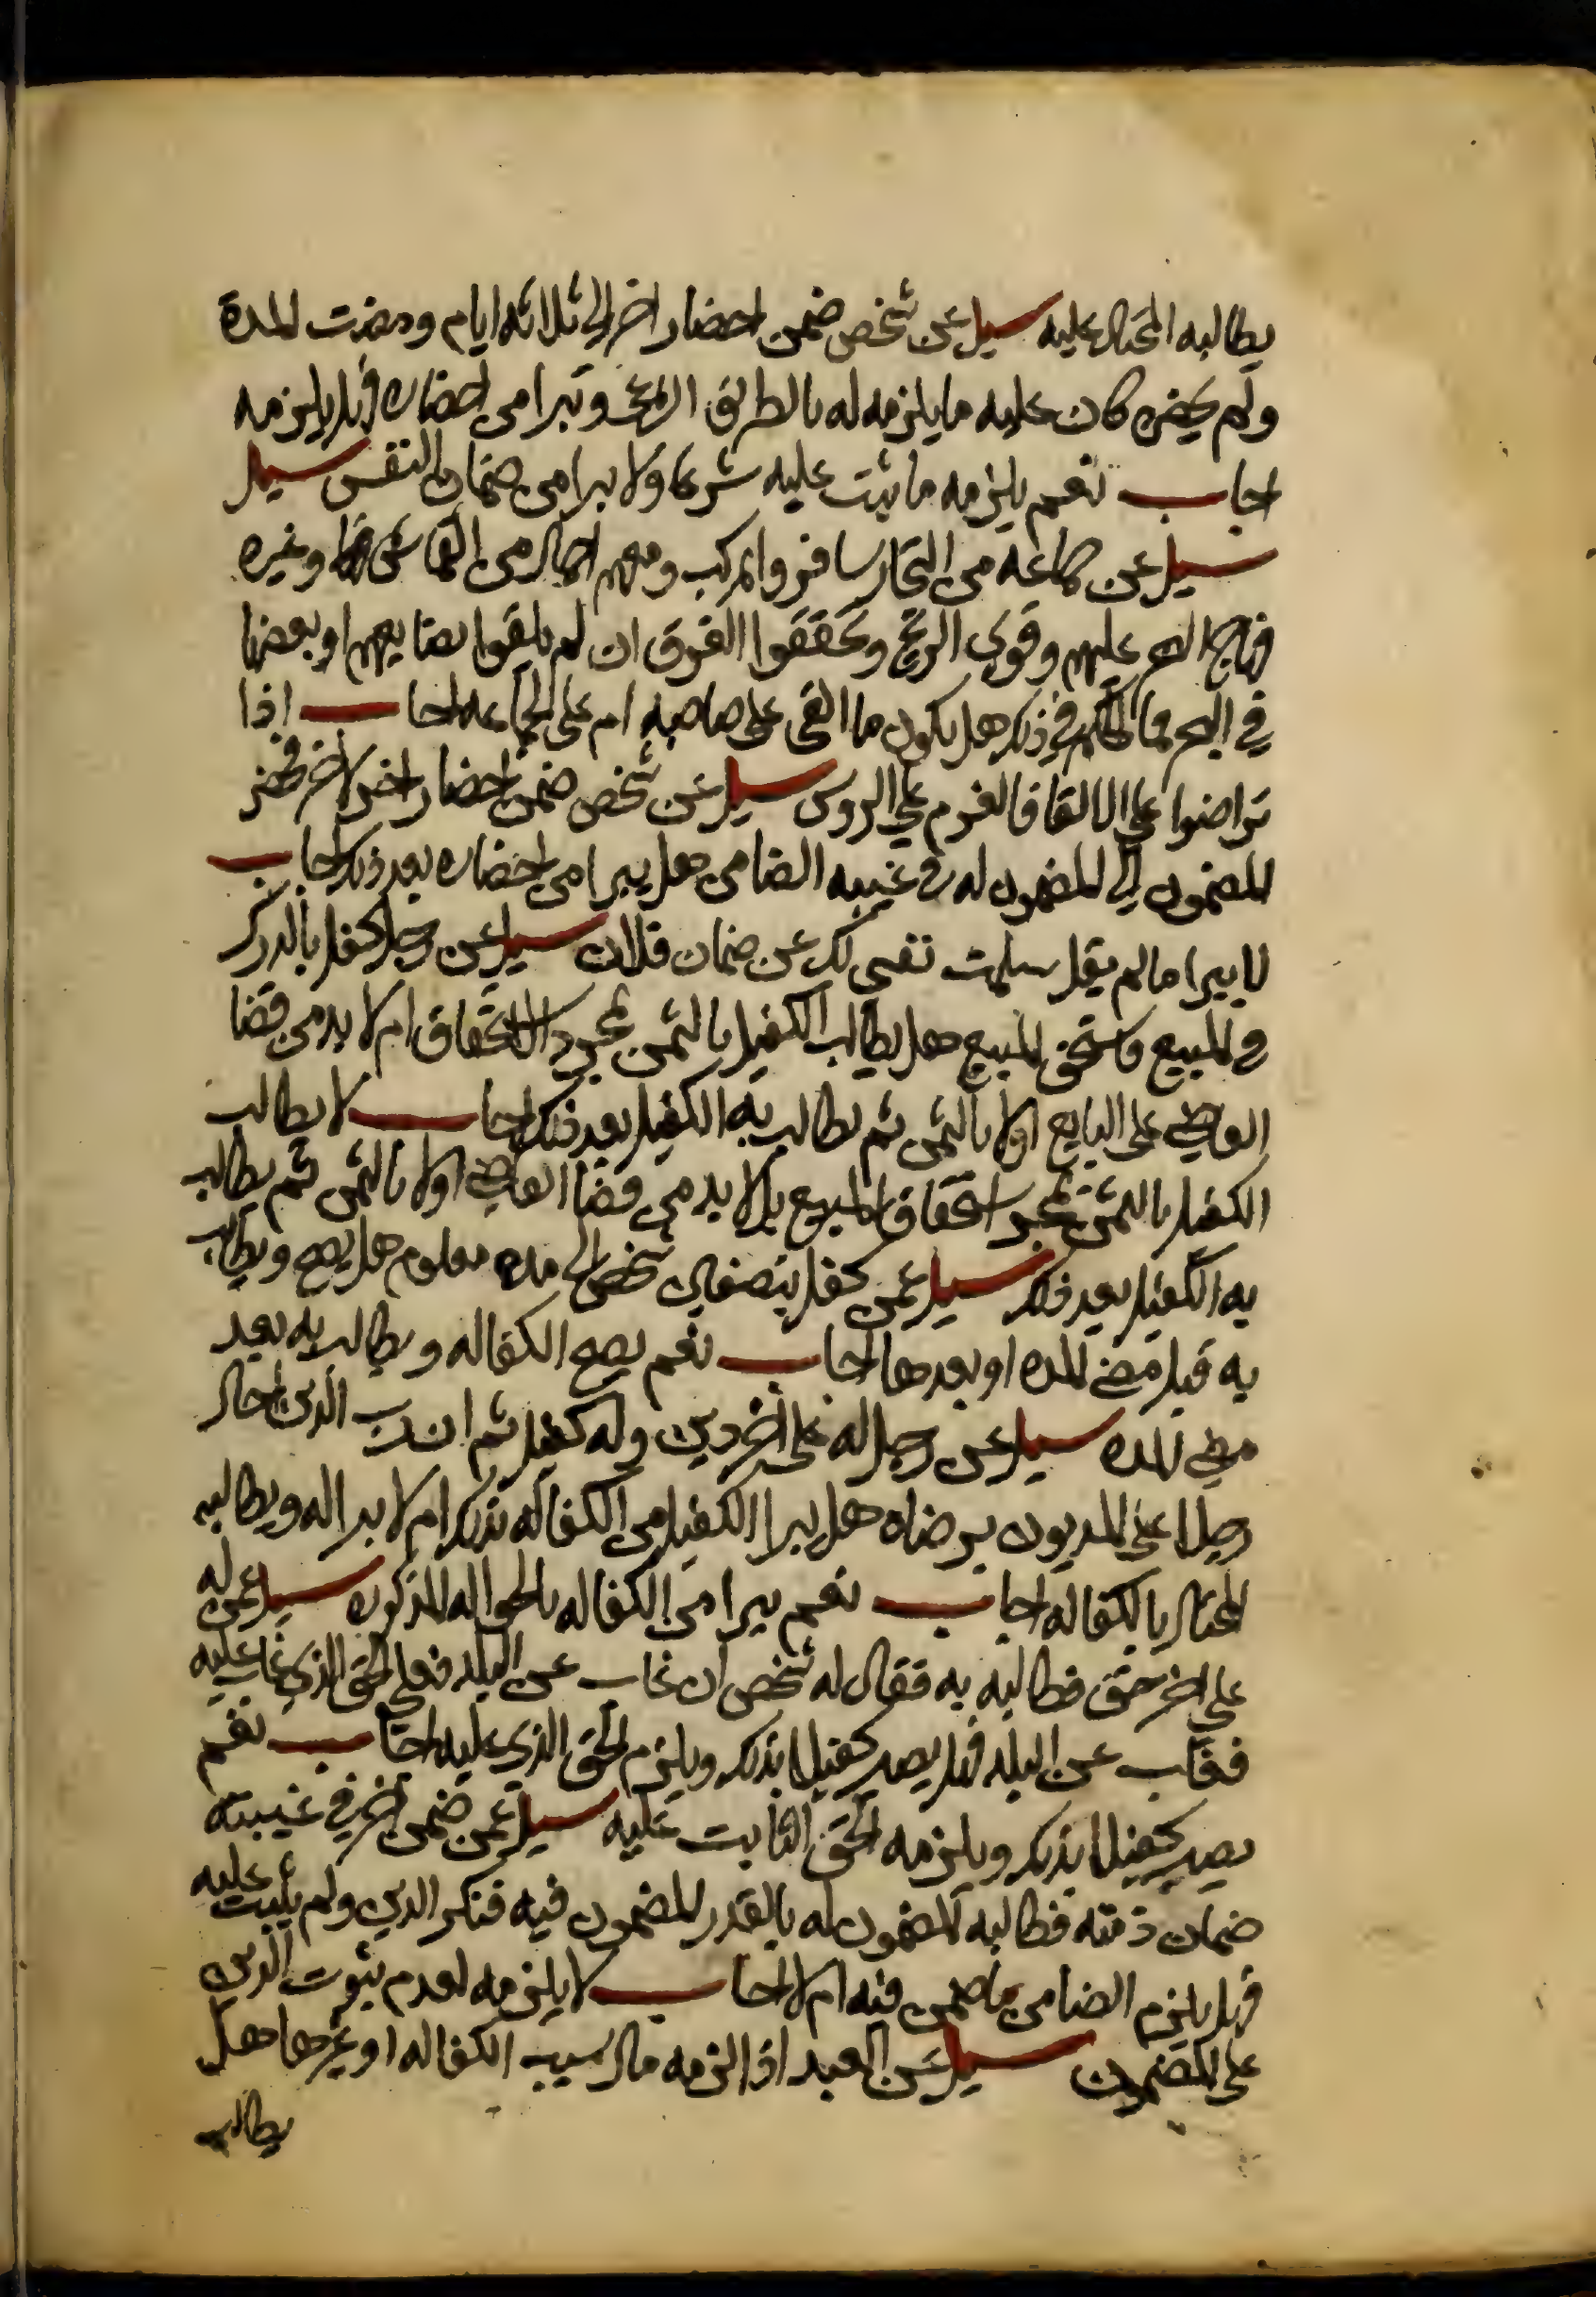 يطالبه المحتال عليه سيل عن شخص ضمن احضار اخر الى ثلاثه ايام ومضت المدة
ولم يحضره كان عليه ما يلزمه له بالطريق الشرعي وتبرا من احضاره فهل يلزمه
اجاب نعم يلزمه ما يثبت عليه شرعا ولا يبرا من ضمان النفس سيل
سيل عن جماعه من التجار سافروا بمركب ومعهم احمال من القماش وغيره
فهاج البحر عليهم وقوي الريح وتحققوا الغرق ان لم يلقوا بضايعهم او بعضها
في البحر فما الحكم في ذلك هل يكون ما القى على صاحبه ام على الجماعه اجاب اذا
تراضوا على الالقا فالغرم على الروس سيل عن شخص ضمن احضار اخر لاخر فحضر
المضمون الى المضمون له في غيبه الضامن هل يبرا من احضاره بعد ذلك اجاب
لا يبرا ما لم يقل سلمت نفسي لك عن ضمان فلان سيل عن رجل كفل بالدرك
في المبيع واستحق المبيع هل يطالب الكفيل بالثمن بمجرد الاستحقاق ام لا بد من قضا
القاضي على البايع اولا بالثمن ثم يطالب به الكفيل بعد ذلك اجاب لا يطالب
الكفيل بالثمن بمجرد استحقاق المبيع بل لا بد من قضا القاضي اولا بالثمن ثم يطالب
به الكفيل بعد ذلك سيل عمن كفل بنصفان شخص الى مده معلوم هل يصح ويطالب
به قبل مضي المده او بعدها اجاب نعم يصح الكفاله ويطالب به بعد
مضي المده سيل عن رجل له على اخر دين وله كفيل ثم ان رب الدين احال
رجلا على المديون برضاه هل يبرا الكفيل من الكفاله بذلك ام لا يبرا له ويطالبه
المحتال بالكفاله اجاب نعم يبرا من الكفاله بالحواله المذكوره سيل عمن له
على اخر حق فطالبه به فقال له شخص ان غاب عن البلد فعلي الحق الذي غاب عليه
فغاب عن البلد فهل يصير كفيلا بذلك ويلزم الحق الذي عليه اجاب نعم
يصير كفيلا بذلك ويلزمه الحق الثابت عليه سيل عمن ضمن اخر في غيبته
ضمان ذمته فطالبه المضمون له بالقدر المضمون فيه فنكر الدين ولم يثبت عليه
فهل يلزم الضامن ما ضمن فيه ام لا اجاب لا يلزمه لعدم ثبوت الدين
على المضمون سيل عن العبد اذا لزمه مال بسبب الكفاله او غيرها هل
يطالب